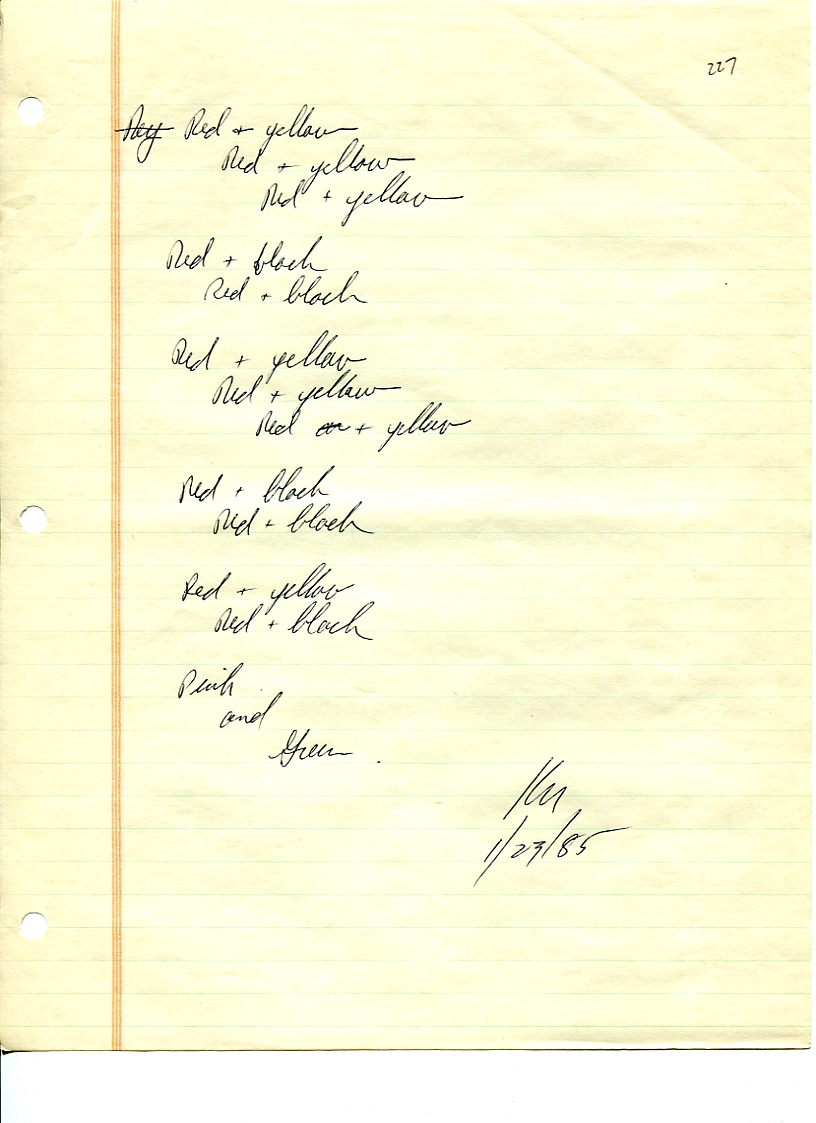 227
Red + yellow
Red + yellow
Red + yellow
Red + black
Red + black
Red + yellow
Red + yellow
Red + yellow
Red + black
Red + black
Red + yellow
Red + black
Pink
and
Green.
1/23/85